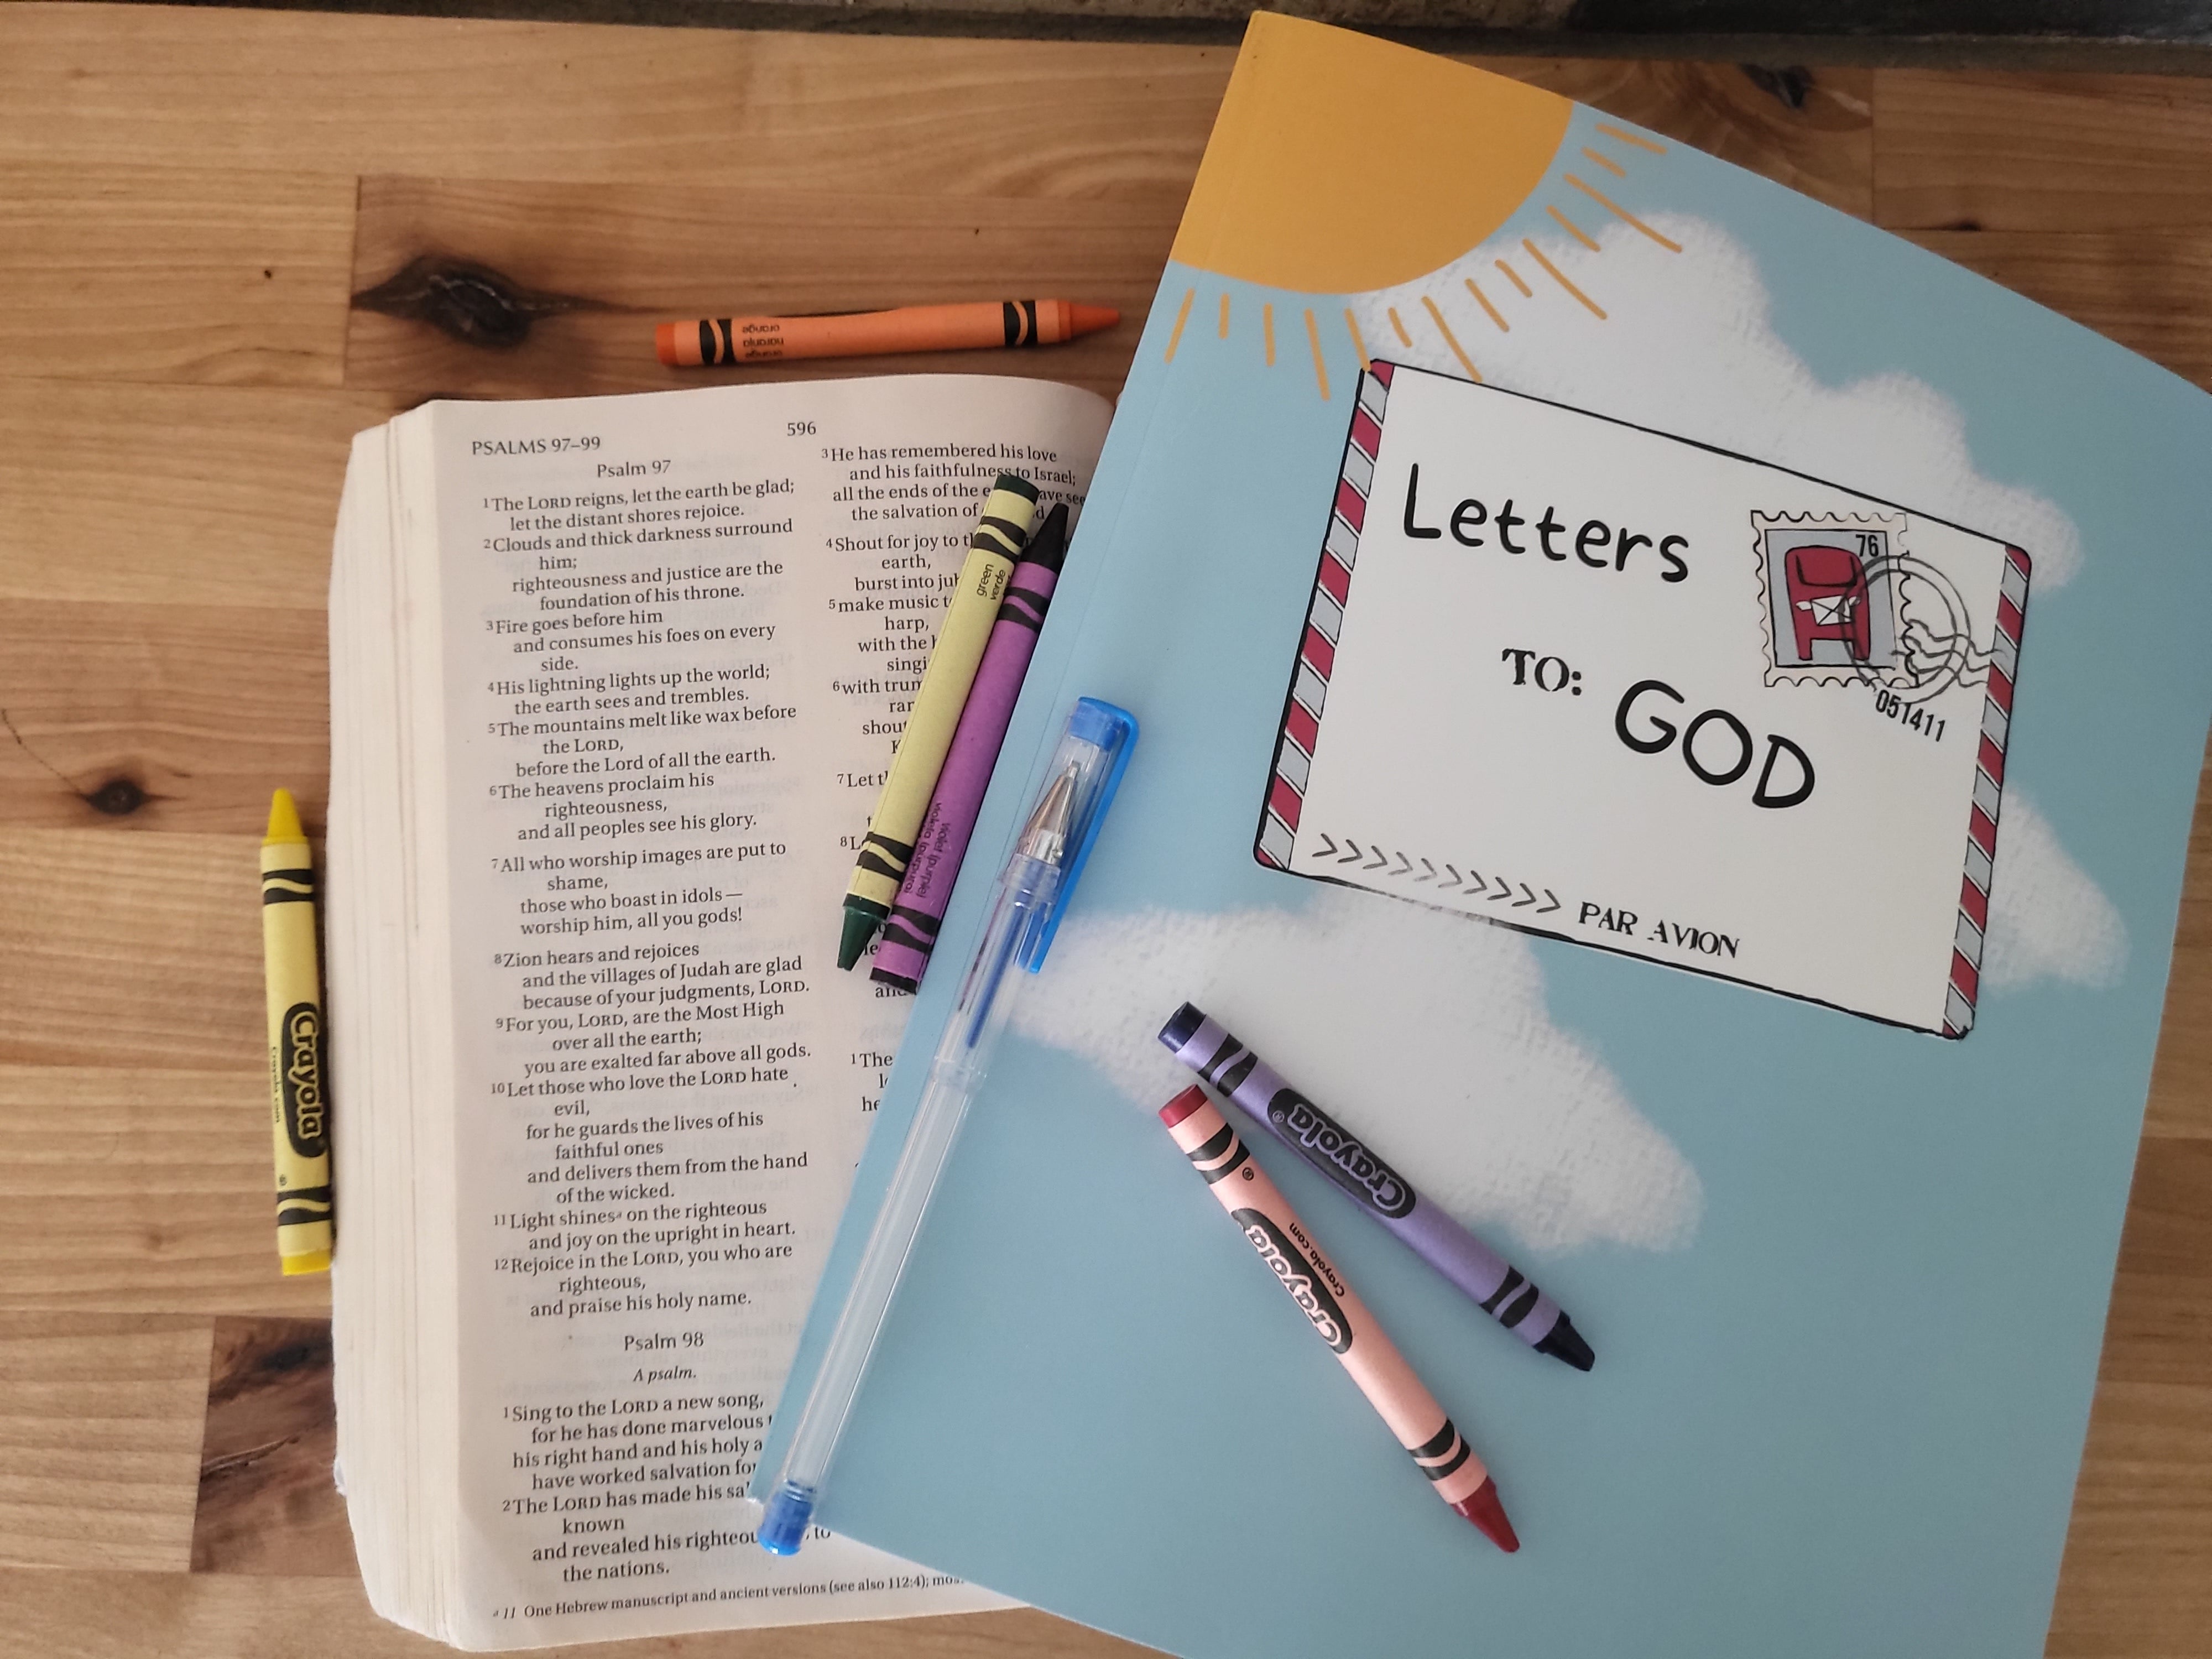 PSALMS 97–99
596
Psalm 97
1The LORD reigns, let the earth be glad;
let the distant shores rejoice.
2Clouds and thick darkness surround
him;
righteousness and justice are the
foundation of his throne.
3Fire goes before him
and consumes his foes on every
side.
4His lightning lights up the world;
the earth sees and trembles.
5The mountains melt like wax before
the LORD,
before the Lord of all the earth.
6The heavens proclaim his
righteousness,
and all peoples see his glory.
7All who worship images are put to
shame,
those who boast in idols —
worship him, all you gods!
8Zion hears and rejoices
and the villages of Judah are glad
because of your judgments, LORD.
9For you, LORD, are the Most High
over all the earth;
you are exalted far above all gods.
10Let those who love the LORD hate
evil,
for he guards the lives of his
faithful ones
and delivers them from the hand
of the wicked.
11Light shinesa on the righteous
and joy on the upright in heart.
12Rejoice in the LORD, you who are
righteous,
and praise his holy name.
Psalm 98
A psalm.
1Sing to the LORD a new song,
for he has done marvelous
his right hand and his holy
have worked salvation
2The LORD has made his
known
and revealed his to
the nations.
a 11 One Hebrew manuscript and ancient versions (see also 112:4);
3He has remembered his love
and his faithfulness to Israel;
all the ends of the
the salvation of
4Shout for joy to
earth,
burst into
5make music
harp,
with the
6with
7Let
8
1The
orange
naranja
orange
green
verde
violet (purple)
violeta (púrpura)
Crayola
Crayola.com
Crayola
Crayola
Crayola.com
Letters
TO:
GOD
76
051411
>>>>>>>>>> PAR AVION